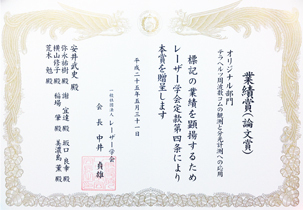 業績賞(論文賞)
オリジナル部門
テラヘルツ周波数コムの観測と分光計測への応用
標記の業績を顕揚するため
レーザー学会定款第四条により
本賞を贈呈します
平成二十五年五月三十一日
一般社団法人 レーザー学会
会長 中井貞雄
安井武史 殿
弥永祐樹 殿
横山修子 殿
荒木 勉 殿
謝 宜達 殿
稲場 肇 殿
坂口良幸 殿
美濃島 薫 殿